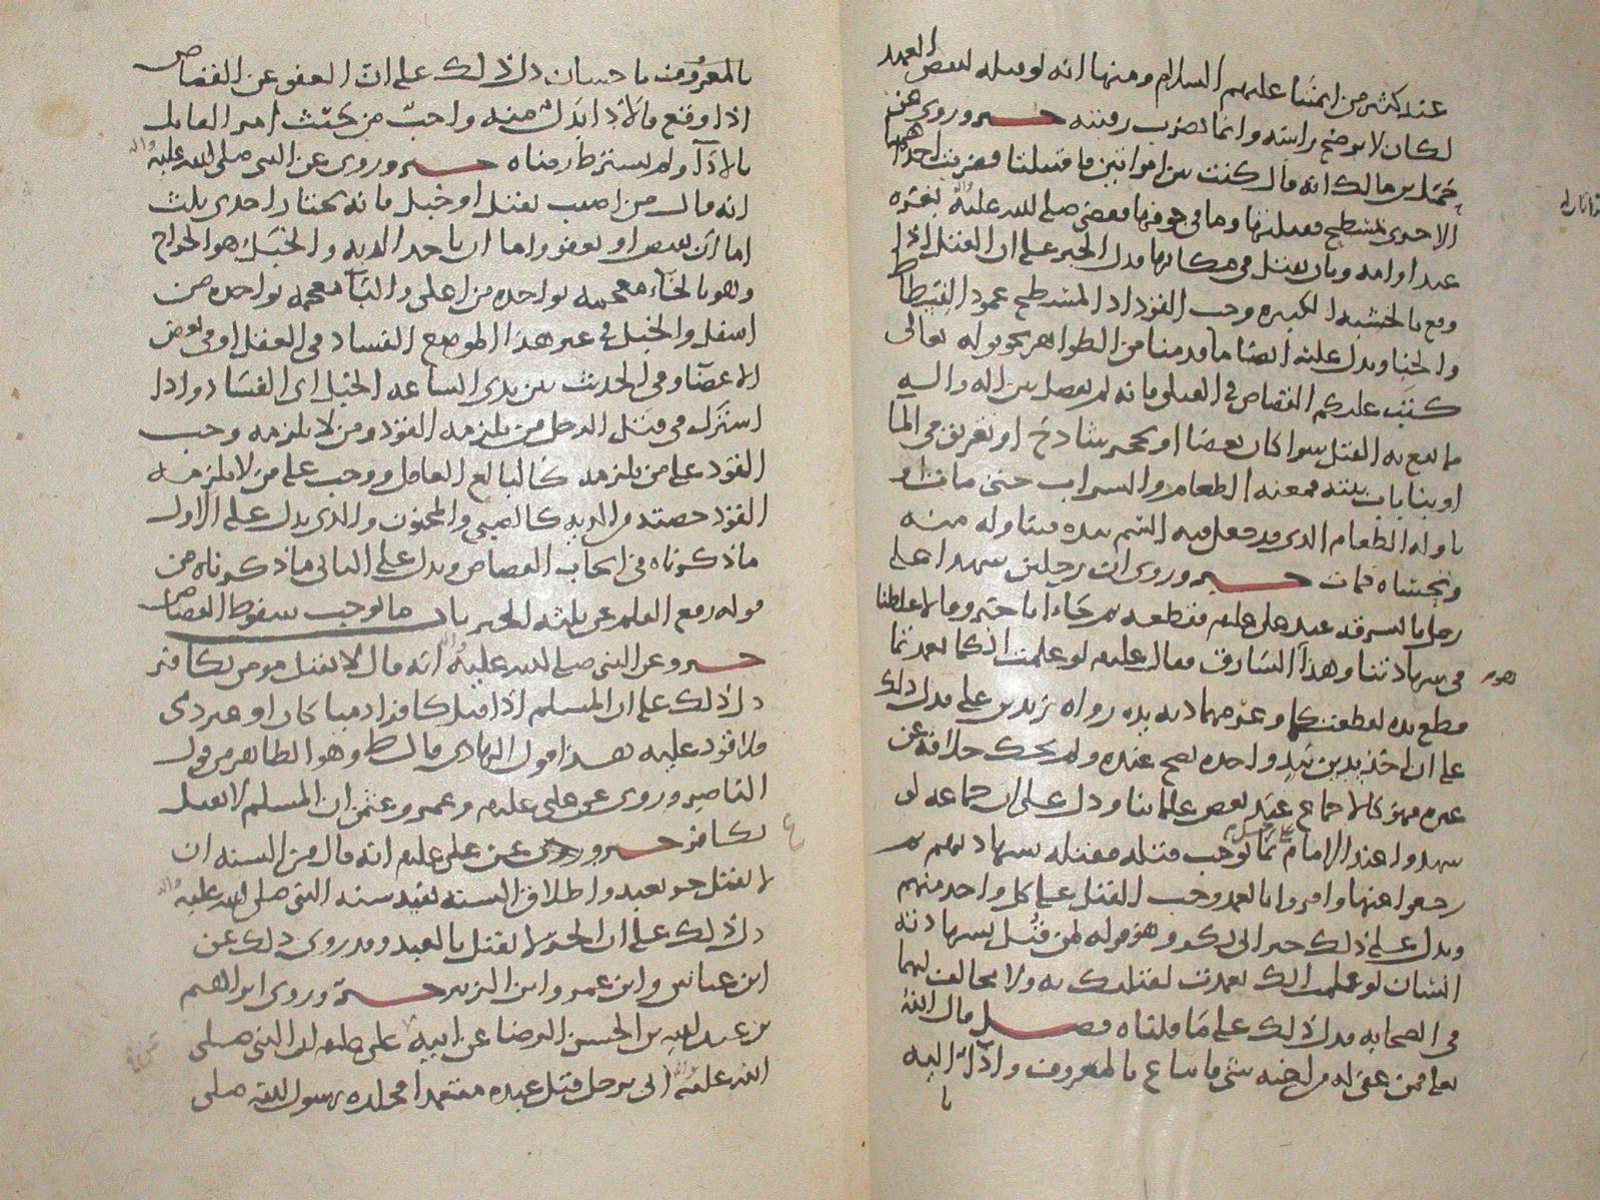 عند كثير من ائمتنا عليهم السلام ومنها انه لو سله بعض العمد
لكان لا يوضح راسه وانما يضرب رقبته خبر وروي عن
حمل بن مالك انه قال كنت بين امراتين فاقتتلتا فضربت احداهما
الاخرى بمسطح فقتلتها وما في جوفها فقضى صلى الله عليه بغره
عبد او امه وبان يقتل في مكانها فدل الخبر على ان القتل اذا
وقع بالخشبه الكبيره وجب القود اذ المسطح عمود الفسطاط
والخبا ويدل عليه ايضا ما قدمنا من الظواهر نحو قوله تعالى
كتب عليكم القصاص في القتلى فانه لم يفصل بين اله واليه
ما يقع به القتل سوا كان بعصا او بحجر شادخ او تغريق في الما
او بنا بات بيته فمنعه الطعام والشراب حتى مات او
ناوله الطعام الذي قد جعل فيه السم بيده فتناوله منه
وتحساه فمات خبر وروي ان رجلين شهدا على
رجل بالسرقه عند علي عليه فقطعه ثم جاءا باخر وقالا غلطنا
في شهادتنا وهذا السارق فقال عليه لو علمت انكما تعمدتما
قطع يده لقطعتكما وغرمهما ديه يده رواه زيد بن علي فدل ذلك
على ان اخذ يدين بيد واحده يصح عنده ولم يحك خلافه عن
غيره فهو كالاجماع عند بعض علمائنا ودل على ان جماعه لو
شهدوا عند الامام بما يوجب قتله فقتله بشهادتهم ثم
رجعوا عنها واقروا بالعمد وجب القتل على كل واحد منهم
ويدل على ذلك خبر ابي بكر وهو قوله لمن قتل بشهادته
انسان لو علمت انك تعمدت لقتلتك به ولا مخالف لهما
في الصحابه فدل ذلك على ما قلناه فصل قال الله
تعالى فمن عفي له من اخيه شي فاتباع بالمعروف واداء اليه
با
بالمعروف باحسان دل ذلك على ان العفو عن القصاص
اذا وقع بالاداء بدل منه واجب من حيث امر القاتل
بالادا ولم يشترط رضاه خبر وروي عن النبي صلى الله عليه واله
انه قال من اصيب بقتل او خبل فانه يختار احدى ثلث
اما ان يقتص او يعفو واما ان ياخذ الديه والخبل هو الجراح
وهو بالخاء معجمه بواحده من اعلى والباء معجمه بواحده من
اسفل والخبل في غير هذا الموضع الفساد في العقل او في بعض
الاعضا وفي الحديث بين يدي الساعه الخبل اي الفساد واذا
اشترك في قتل الرجل من يلزمه القود ومن لا يلزمه وجب
القود على من يلزمه كالبالغ العاقل ووجب على من لا يلزمه
القود حصته من الديه كالصبي والمجنون والذي يدل على الاول
ما ذكرناه في ايجاب القصاص ويدل على الثاني ما ذكرناه من
قوله رفع القلم عن ثلثه الخبر باب ما يوجب سقوط القصاص
خبر وعن النبي صلى الله عليه واله انه قال لا يقتل مومن بكافر
دل ذلك على ان المسلم اذا قتل كافرا ذميا كان او حربي
فلا قود عليه هذا قول الهادي قال ط وهو الظاهر من قول
الناصر وروي عن علي عليه وعمر وعثمن ان المسلم لا يقتل
بكافر خبر وروي عن علي عليه انه قال من السنه ان
لا يقتل حر بعبد واطلاق السنه يفيد سنه النبي صلى الله عليه واله
دل ذلك على ان الحر لا يقتل بالعبد وقد روي ذلك عن
ابن عباس وابن عمر وابن الزبير خبر وروى ابراهيم
بن عبد الله بن الحسن الرضا عن ابيه عن علي عليه ان النبي صلى
الله عليه واله اتي برجل قتل عبده متعمدا فجلده رسول الله صلى